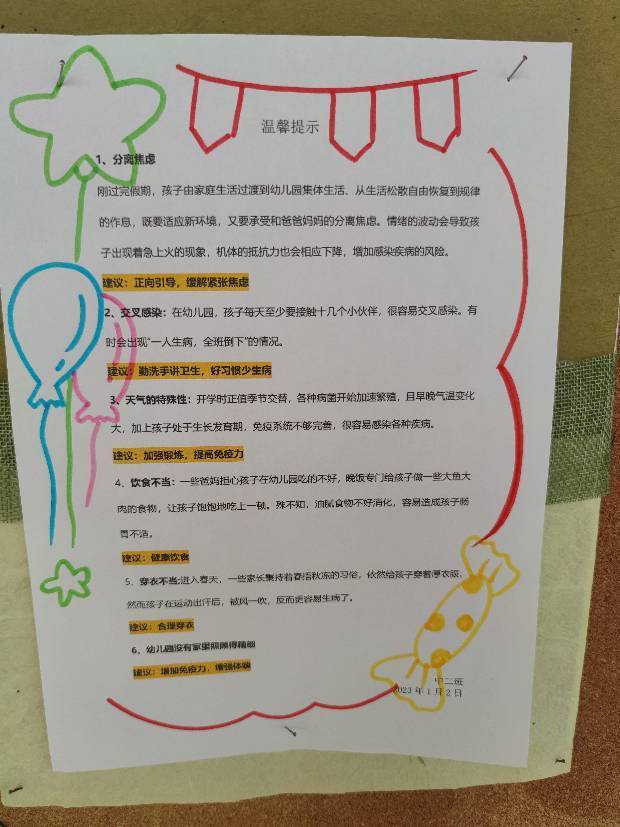 温馨提示
1、分离焦虑
刚过完假期，孩子由家庭生活过渡到幼儿园集体生活、从生活松散自由恢复到规律
的作息，既要适应新环境，又要承受和爸爸妈妈的分离焦虑。情绪的波动会导致孩
子出现着急上火的现象，机体的抵抗力也会相应下降，增加感染疾病的风险。
建议：正向引导，缓解紧张焦虑
2、交叉感染：在幼儿园，孩子每天至少要接触十几个小伙伴，很容易交叉感染。有
时会出现“一人生病，全班倒下”的情况。
建议：勤洗手讲卫生，好习惯少生病
3、天气的特殊性：开学时正值季节交替，各种病菌开始加速繁殖，且早晚气温变化
大，加上孩子处于生长发育期，免疫系统不够完善，很容易感染各种疾病。
建议：加强锻炼，提高免疫力
4、饮食不当：一些爸妈担心孩子在幼儿园吃的不好，晚饭专门给孩子做一些大鱼大
肉的食物，让孩子饱饱地吃上一顿。殊不知，油腻食物不好消化，容易造成孩子肠
胃不适。
建议：健康饮食
5、穿衣不当:进入春天，一些家长秉持着春捂秋冻的习俗，依然给孩子穿着厚衣服，
然而孩子在运动出汗后，被风一吹，反而更容易生病了。
建议：合理穿衣
6、幼儿园没有家里照顾得精细
建议：增加免疫力，增强体质
中二班
2023年1月2日